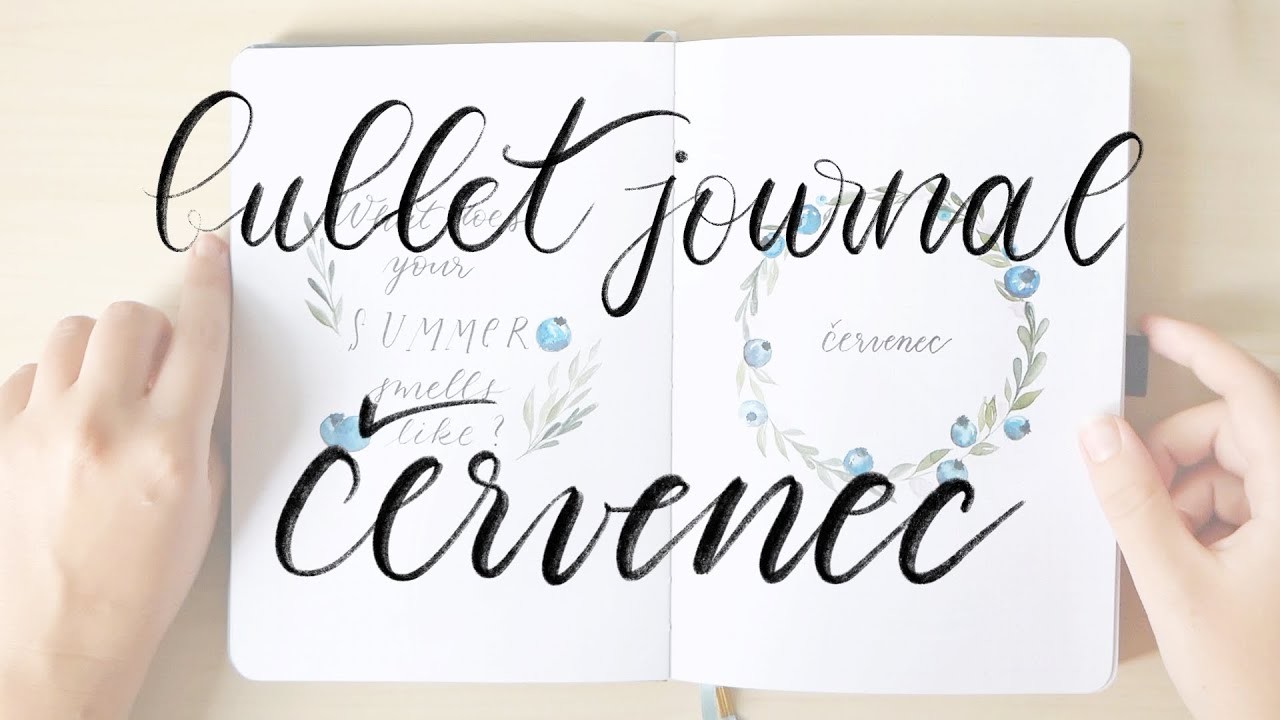 bullet journal
What does
your
SUMMER
smells
like?
červenec
červenec